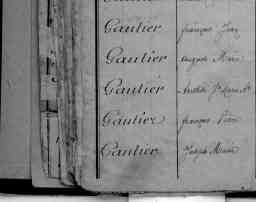 Gautier françois Jean
Gautier auguste Marie
Gautier
Gautier françois Pierre
Gautier Joseph Marie